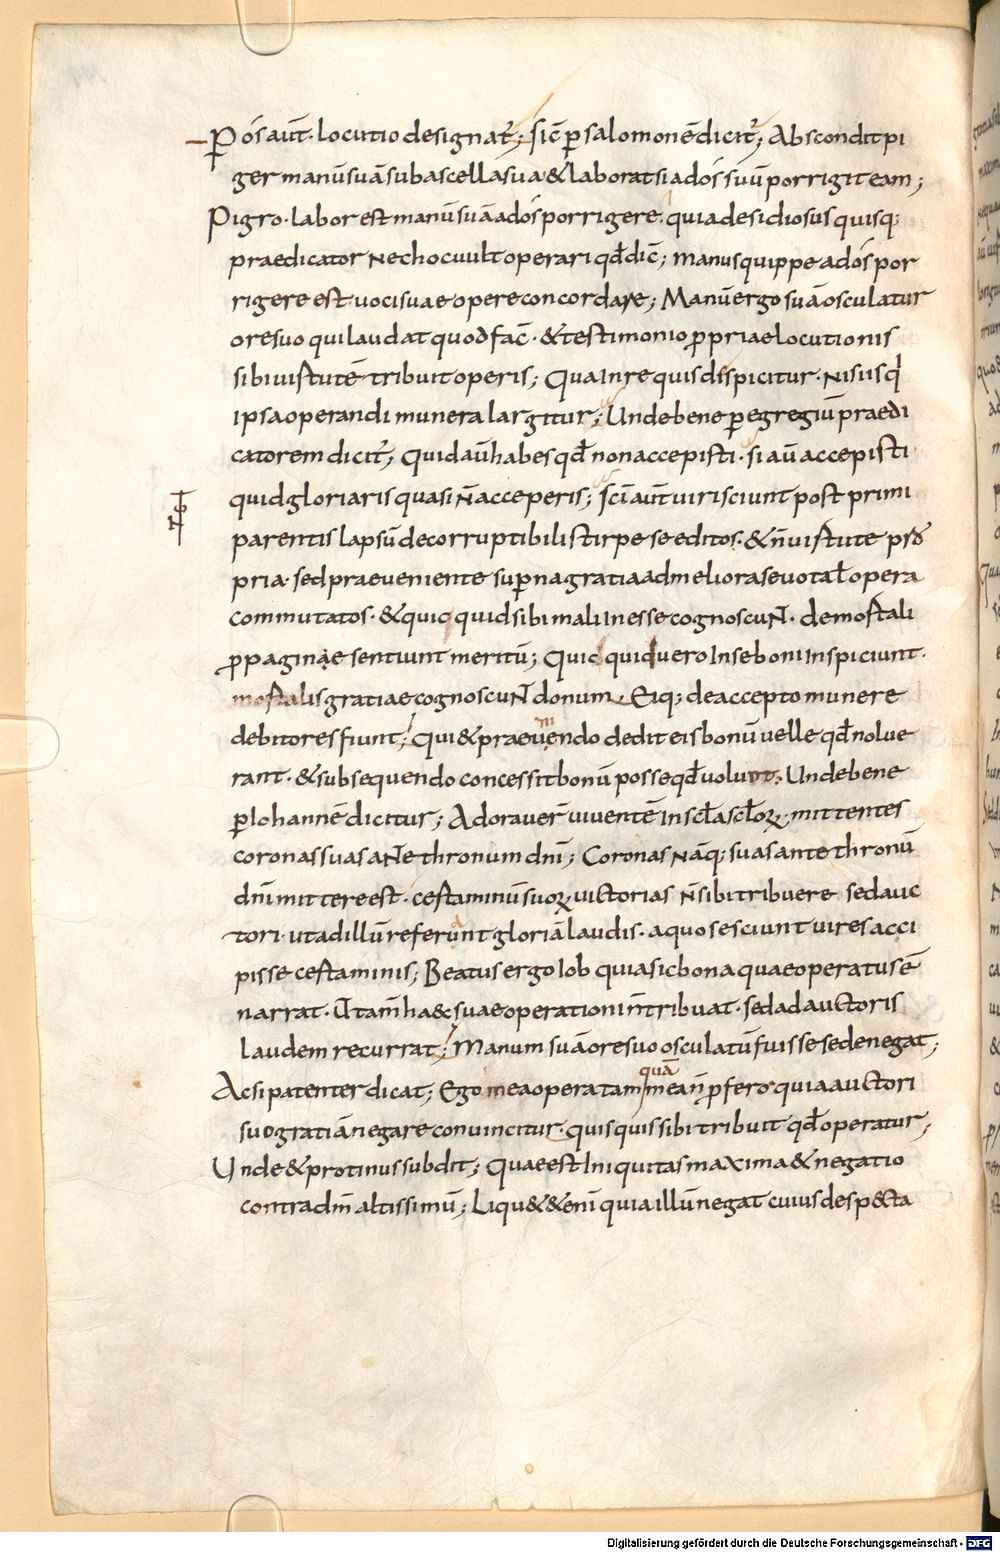 P ós aut̄· locutio designat̃; sic̄ ꝑ salomonē dicit̃; Abscondit pi
ger manū suā sub ascella sua & laborat si ad ós suū porrigit eam;
Pigro· labor est manū suā ad ós porrigere· quia desidiosus quisq;
praedicator nec hoc uult operari qđ dic̄; manus quippe ad ós por
rigere est uoci suae opere concordare; Manū ergo suā osculatur
ore suo qui laudat quod fac̄· & testimonio ꝓpriae locutionis
sibi uirtutē tribuit operis; Qua in re quis despicitur· nisi is q
ipsa operandi munera largitur; Unde bene ꝑ egregiū praedi
catorem dicit̃; Quid aū habes qđ non accepisti· si aū accepisti
quid gloriaris quasi n̄ acceperis; sc̄i aut̄ uiri sciunt post primi
parentis lapsū de corruptibili stirpe se editos· & n̄ uirtute pro
pria· sed praeueniente supna gratia ad meliora se uota ł opera
commutatos· & quicquid sibi mali inesse cognoscunt· de mortali
ꝓpaginae sentiunt meritū; Quicquid uero in se boni inspiciunt·
mortalis gratiae cognoscunt donum Eiq; de accepto munere
debitores fiunt; Qui & praeuendo dedit eis bonū uelle qđ nolue
ni
rant· & subsequendo concessit bonū posse qđ uolunt; Unde bene
ꝑ Iohannē dicitur; Adorauer̄ uiuentē in scl̄a scl̄oꝝ· mittentes
coronas suas ante thronum dn̄i; Coronas nāq; suas ante thronū
dn̄i mittere est· certaminū suoꝝ uictorias n̄ sibi tribuere sed auc
tori· ut ad illū referunt gloriā laudis· a quo se sciunt uires acci
a
pisse certaminis; Beatus ergo Iob quia sic bona quae operatus ē
narrat· Ut am̄ haec suae operationi n̄ tribuat· sed ad auctoris
laudem recurrat; Manum suā ore suo osculatū fuisse se denegat;
Ac si patenter dicat; Ego mea opera tam mea n̄ ꝓfero quia auctori
quā
suo gratiā negare conuincitur· quisquis sibi tribuit qđ operatur;
Unde & protinus subdit; Quae est iniquitas maxima & negatio
contra dm̄ altissimū; Liqu& & enī quia illū negat cuius desp&ta
Digitalisierung gefördert durch die Deutsche Forschungsgemeinschaft - DFG